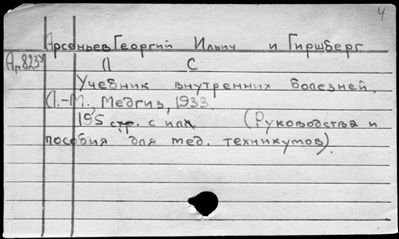 4
Арсеньев Георгий Ильич и Гиршберг
Ар823у Л С
Учебник внутренних болезней.
Л.-М., Медгиз, 1933.
195 стр. с илл. (Руководства и
пособия для мед. техникумов).